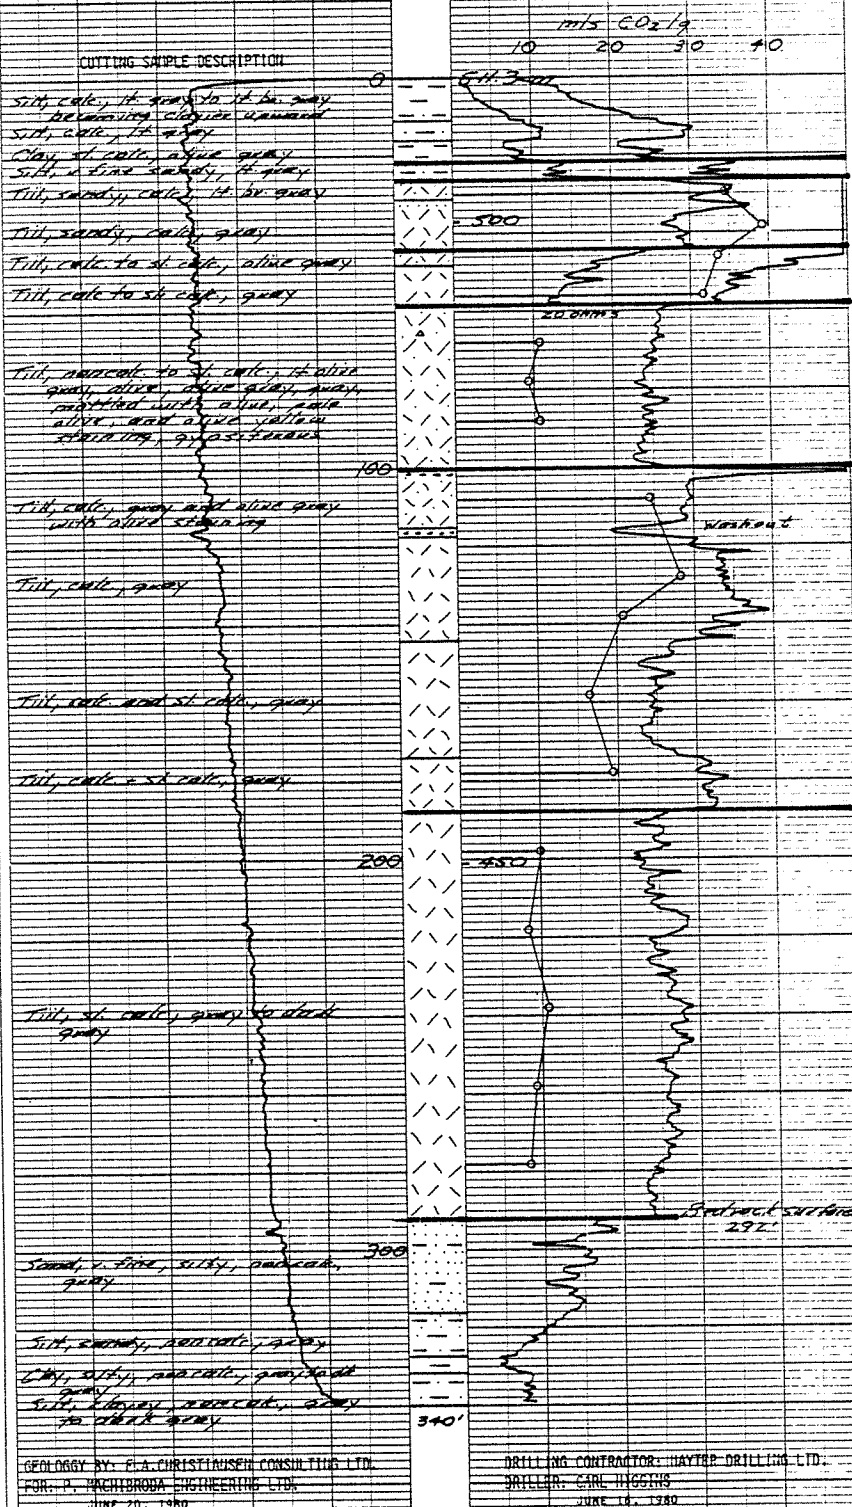 mls CO2/g
10 20 30 40
CUTTING SAMPLE DESCRIPTION
0
G.H. 3
Silt, calc., lt. gray to lt. br. gray
becoming clayier upward
Silt, calc., lt gray
Clay, sl. calc., olive gray
Silt, v. fine sandy, lt gray
Till, sandy, calc., lt br gray
500
Till, sandy, calc., gray
Till, calc. to sl. calc., olive gray
Till, calc to sl. calc., gray
20 ohms
Till, noncalc. to sl. calc., lt olive
gray, olive, olive gray, gray,
mottled with olive, pale
olive, and olive yellow
staining, gypsiferous
100
Till, calc., gray and olive gray
with olive staining
washout
Till, calc., gray
Till, calc. and sl. calc., gray
Till, calc - sl calc., gray
200
450
Till, sl. calc., gray to dark
gray
Bedrock surface
292'
300
Sand, v. fine, silty, noncalc.,
gray
Silt, sandy, noncalc., gray
Clay, silty, noncalc., gray to dk
gray
Silt, clayey, noncalc., gray
to dark gray
340'
GEOLOGGY BY: E.A. CHRISTIAUSEN CONSULTING LTD.
FOR: P. MACHIBRODA ENGINEERING LTD.
JUNE 20, 1980
DRILLING CONTRACTOR: HAYTER DRILLING LTD.
DRILLER: CARL HIGGINS
JUNE 18, 1980